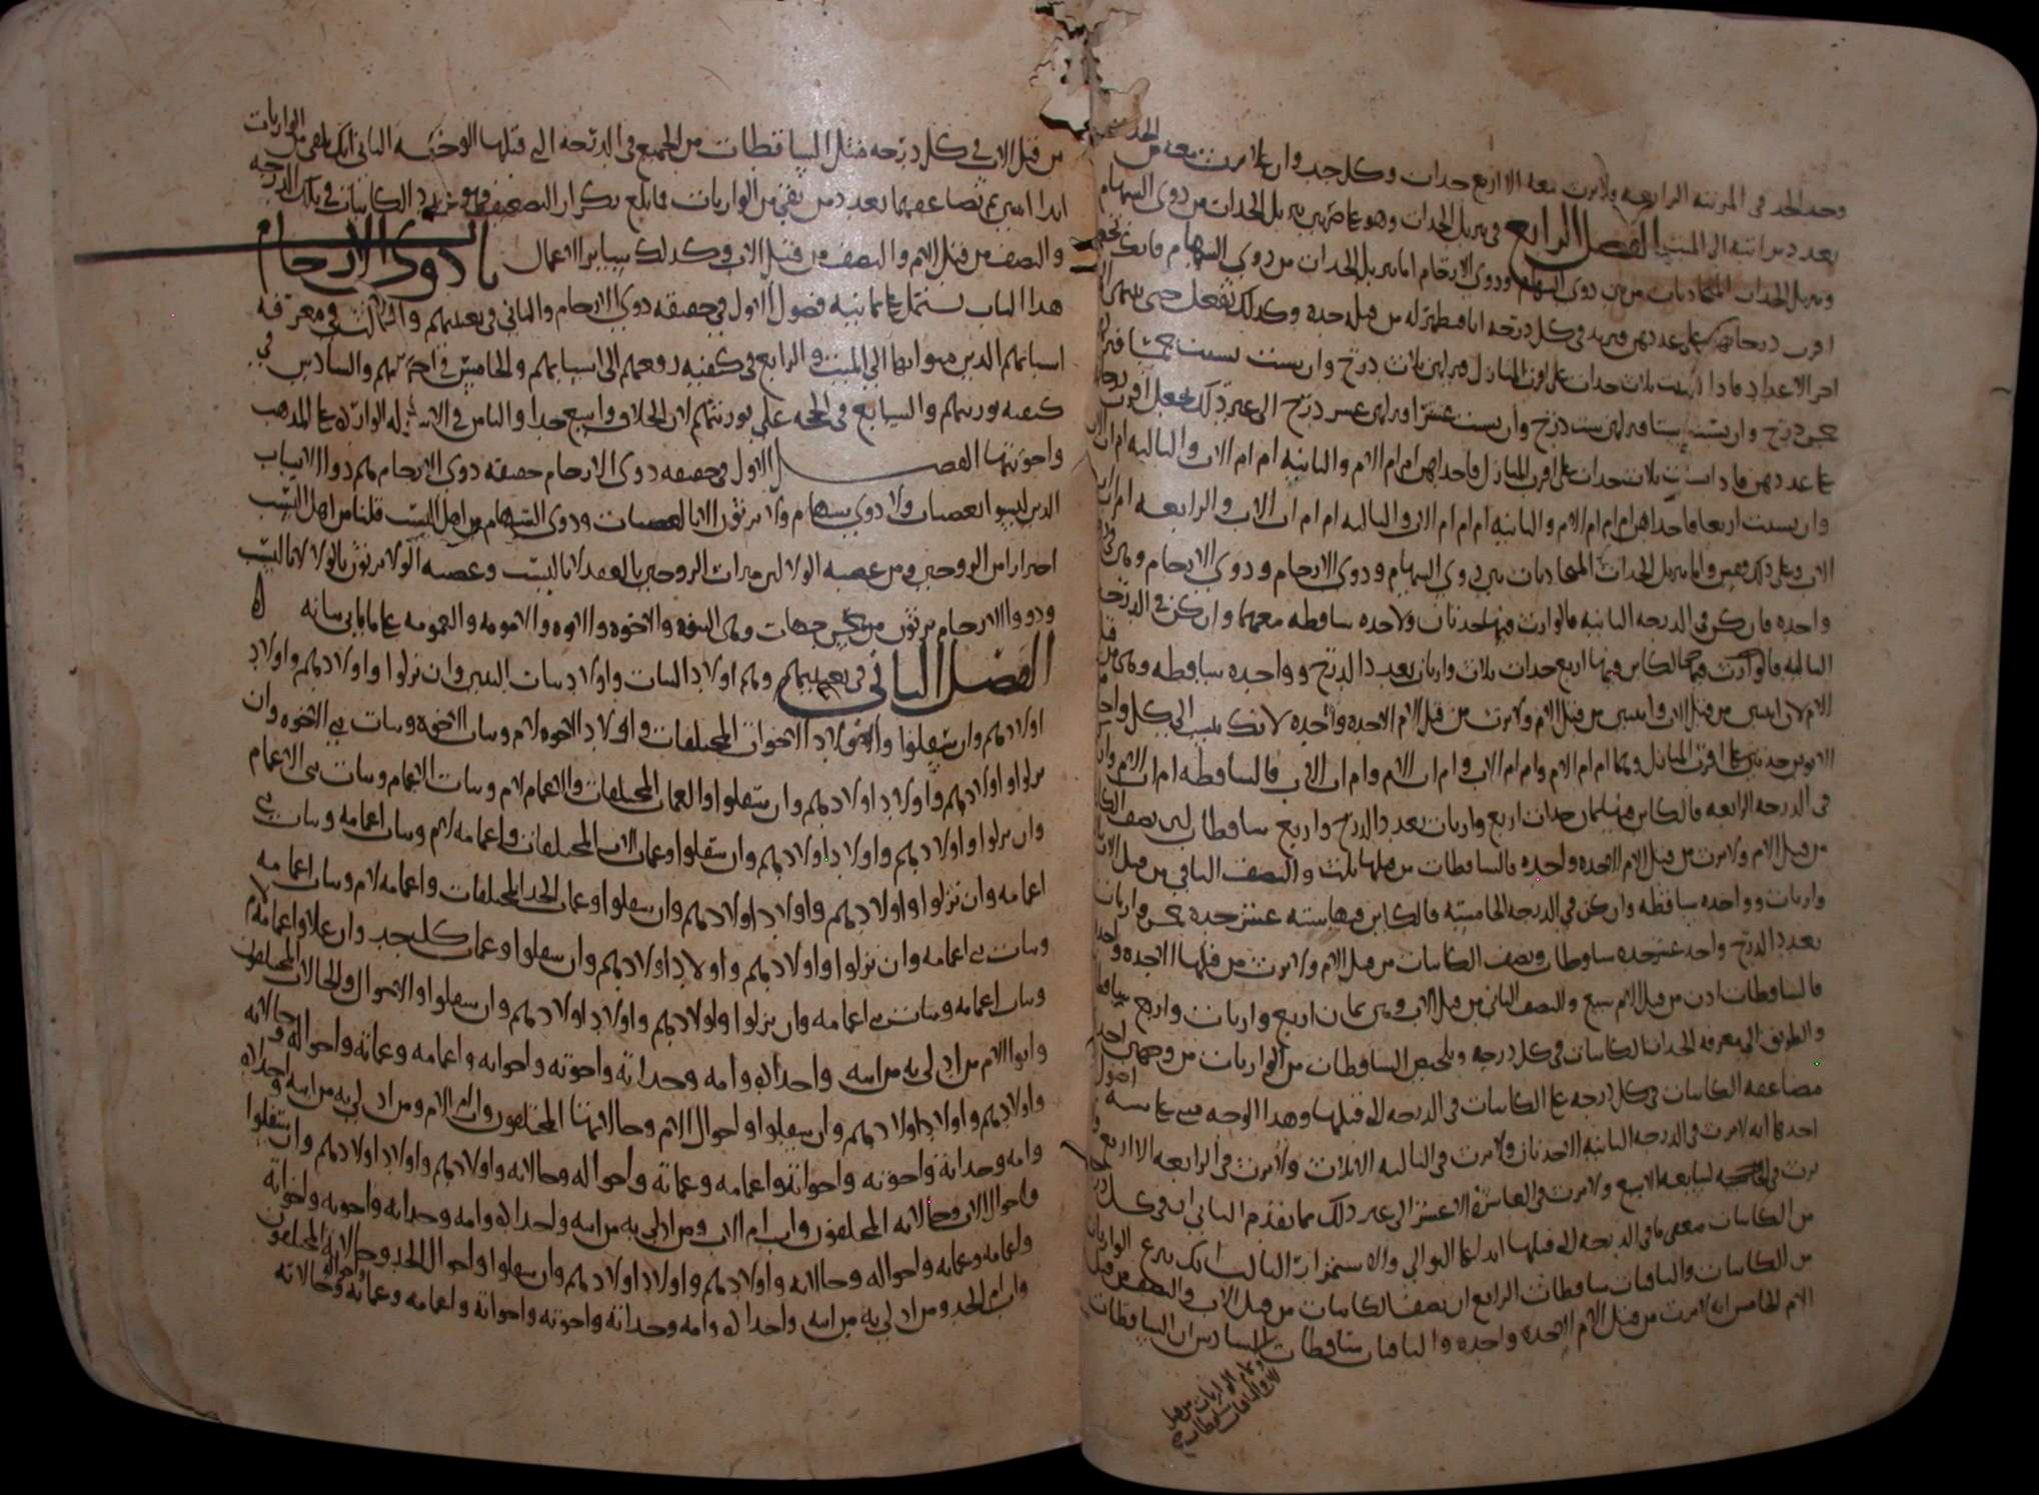 وجد الجد في المرتبة الرابعة ولا يرث معه الا اربع جدات وكل جد وان علا يرث معه من الجدات
بعدد درجاته الى الميت الفصل الرابع في تنزيل الجدات وهو على ضربين تنزيل الجدات من ذوي السهام
وتنزيل الجدات المتحاذيات من بين ذوي السهام وذوي الارحام اما تنزيل الجدات من ذوي السهام فانك تنظر
اقرب درجاتهن على عددهن فتزيد في كل درجة اما فتنزله من قبله جدة وكذلك تفعل حتى ينتهي الى
اخر الاعداد فاذا اثبت ثلاث جدات على اقرب المنازل فنزلهن ثلاث درج وان بست بست خمسا فنزلهن
خمس درج وان بست ستا فنزلهن ست درج وان بست عشرا فنزلهن عشر درج الى غير ذلك تجعل اقرب
على عددهن فاذا بست ثلاث جدات على اقرب المنازل فاحداهن ام ام الام والثانية ام ام الاب والثالثة ام اب الاب
وان بست اربعا فاحداهن ام ام ام الام والثانية ام ام ام الاب والثالثة ام ام اب الاب والرابعة ام اب اب
الاب وعلى ذلك فقس واما تنزيل الجدات المتحاذيات بين ذوي السهام وذوي الارحام وهي في
واحدة فان كن في الدرجة الثانية فالوارث فيها جدتان ولا جدة ساقطة معهما وان كن في الدرجة
الثالثة فالوارث فيها الكاين فيها اربع جدات ثلاث وارثات بعدد الدرج وواحدة ساقطة وهي من قبل
الام لان اثنتين من قبل الاب واثنتين من قبل الام ولا يرث من قبل الام الا جدة واحدة لانك تنسب الى كل واحد
الابوين جدتين على اقرب المنازل وهما ام ام الام وام ام الاب وام اب الام وام اب الاب فالساقطة ام اب الام وان
في الدرجة الرابعة فالكاين فيها ثمان جدات اربع وارثات بعدد الدرج واربع ساقطات لان نصف الكاينات
من قبل الام ولا يرث من قبل الام الا جدة واحدة فالساقطات من قبلها ثلاث والنصف الباقي من قبل الاب ثلاث
وارثات وواحدة ساقطة وان كن في الدرجة الخامسة فالكاين فيها ستة عشر جدة خمس وارثات
بعدد الدرج واحد عشر جدة ساقطات ونصف الكاينات من قبل الام ولا يرث من قبلها الا جدة واحدة
فالساقطات اذن من قبل الام سبع والنصف الثاني من قبل الاب وهن ثمان اربع وارثات واربع ساقطات
والطريق الى معرفة الجدات الكاينات في كل درجة وتلخيص الساقطات من الوارثات من وجهين احدهما
مضاعفة الكاينات في كل درجة على الكاينات في الدرجة التي قبلها وهذا الوجه مبني على ستة اصول
احدها انه لا يرث في الدرجة الثانية الا جدتان ولا يرث في الثالثة الا ثلاث ولا يرث في الرابعة الا اربع ولا
يرث في السابعة الا سبع ولا يرث في العاشرة الا عشر الى غير ذلك مما تقدم الثاني ان في كل درجة
من الكاينات ضعفي ما في الدرجة التي قبلها ابدا على التوالي والاستمرار الثالث انك تنزع الوارثات
من الكاينات والباقيات ساقطات الرابع ان نصف الكاينات من قبل الاب والنصف من قبل
الام الخامس انه لا يرث من قبل الام الا جدة واحدة والباقيات ساقطات السادس ان الساقطات
من قبل الاب في كل درجة مثل الساقطات من الجميع في الدرجة التي قبلها الوجه الثاني انك تلقي من الوارثات
ابدا اثنتين ثم تضاعفهما بعدد من بقي من الوارثات فما بلغ تكرار التضعيف فهو عدد الكاينات في تلك الدرجة
والنصف من قبل الام والنصف من قبل الاب وكذلك يساير الاعمال باب ذوي الارحام
هذا الباب يشتمل على ثمانية فصول الاول في حقيقة ذوي الارحام والثاني في تعديدهم والثالث في معرفة
اسبابهم الذين يدلون بها الى الميت والرابع في كيفية رفعهم الى اسبابهم والخامس في احكامهم والسادس في
كيفية توريثهم والسابع في الحجة على توريثهم لان الخلاف واسع جدا والثامن في الاسئلة الواردة على المذهب
واجوبتها الفصل الاول في حقيقة ذوي الارحام حقيقة ذوي الارحام هم ذووا الانساب
الذين ليسوا بعصبات ولا ذوي سهام ولا يرثون الا بالعصبات وذوي السهام من اهل النسب قلنا من اهل النسب
احترازا من الزوجين ومن عصبة الولا لان ميراث الزوجين بالعقد لا بالنسب وعصبة الولا يرثون بالولا لا بالنسب
وذووا الارحام يرثون من خمس جهات وهي البنوة والاخوة والابوة والامومة والعمومة على ما ياتي بيانه
الفصل الثاني في تعديدهم وهم اولاد البنات واولاد بنات البنين وان نزلوا واولادهم واولاد
اولادهم وان سفلوا واولاد الاخوات المختلفات واولاد الاخوة لام وبنات الاخوة وبنات بني الاخوة وان
نزلوا واولادهم واولاد اولادهم وان سفلوا والعمات المختلفات والاعمام لام وبنات الاعمام وبنات بني الاعمام
وان نزلوا واولادهم واولاد اولادهم وان سفلوا وعمات الاب المختلفات واعمامه لام وبنات اعمامه وبنات بني
اعمامه وان نزلوا واولادهم واولاد اولادهم وان سفلوا وعمات الجد المختلفات واعمامه لام وبنات اعمامه
وبنات بني اعمامه وان نزلوا واولادهم واولاد اولادهم وان سفلوا وعمات كل جد وان علا واعمامه لام
وبنات اعمامه وبنات بني اعمامه وان نزلوا واولادهم واولاد اولادهم وان سفلوا والاخوال والخالات المختلفون
وابوا الام من ادلى به من ابيه واجداده وامه وجداته واخوته واخواته واعمامه وعماته واخواله وخالاته
واولادهم واولاد اولادهم وان سفلوا واخوال الام وخالاتها المختلفون واب ام الام ومن ادلى به من ابيه واجداده
وامه وجداته واخوته واخواته واعمامه وعماته واخواله وخالاته واولادهم واولاد اولادهم وان سفلوا
واخوال الاب وخالاته المختلفون واب ام الاب ومن ادلى به من ابيه واجداده وامه وجداته واخوته واخواته
واعمامه وعماته واخواله وخالاته واولادهم واولاد اولادهم وان سفلوا واخوال الجد وخالاته المختلفون
واب ام الجد ومن ادلى به من ابيه واجداده وامه وجداته واخوته واخواته واعمامه وعماته واخواله وخالاته